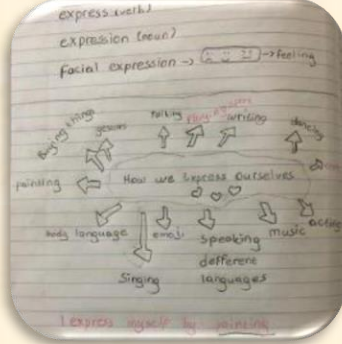 express (verb)
expression (noun)
Facial expression → → feeling
Buying things
gesture
talking
Playing sport
writing
dancing
painting
How we Express ourselves
acting
body language
emoji
speaking
defferent
languages
music
Singing
I express myself by painting